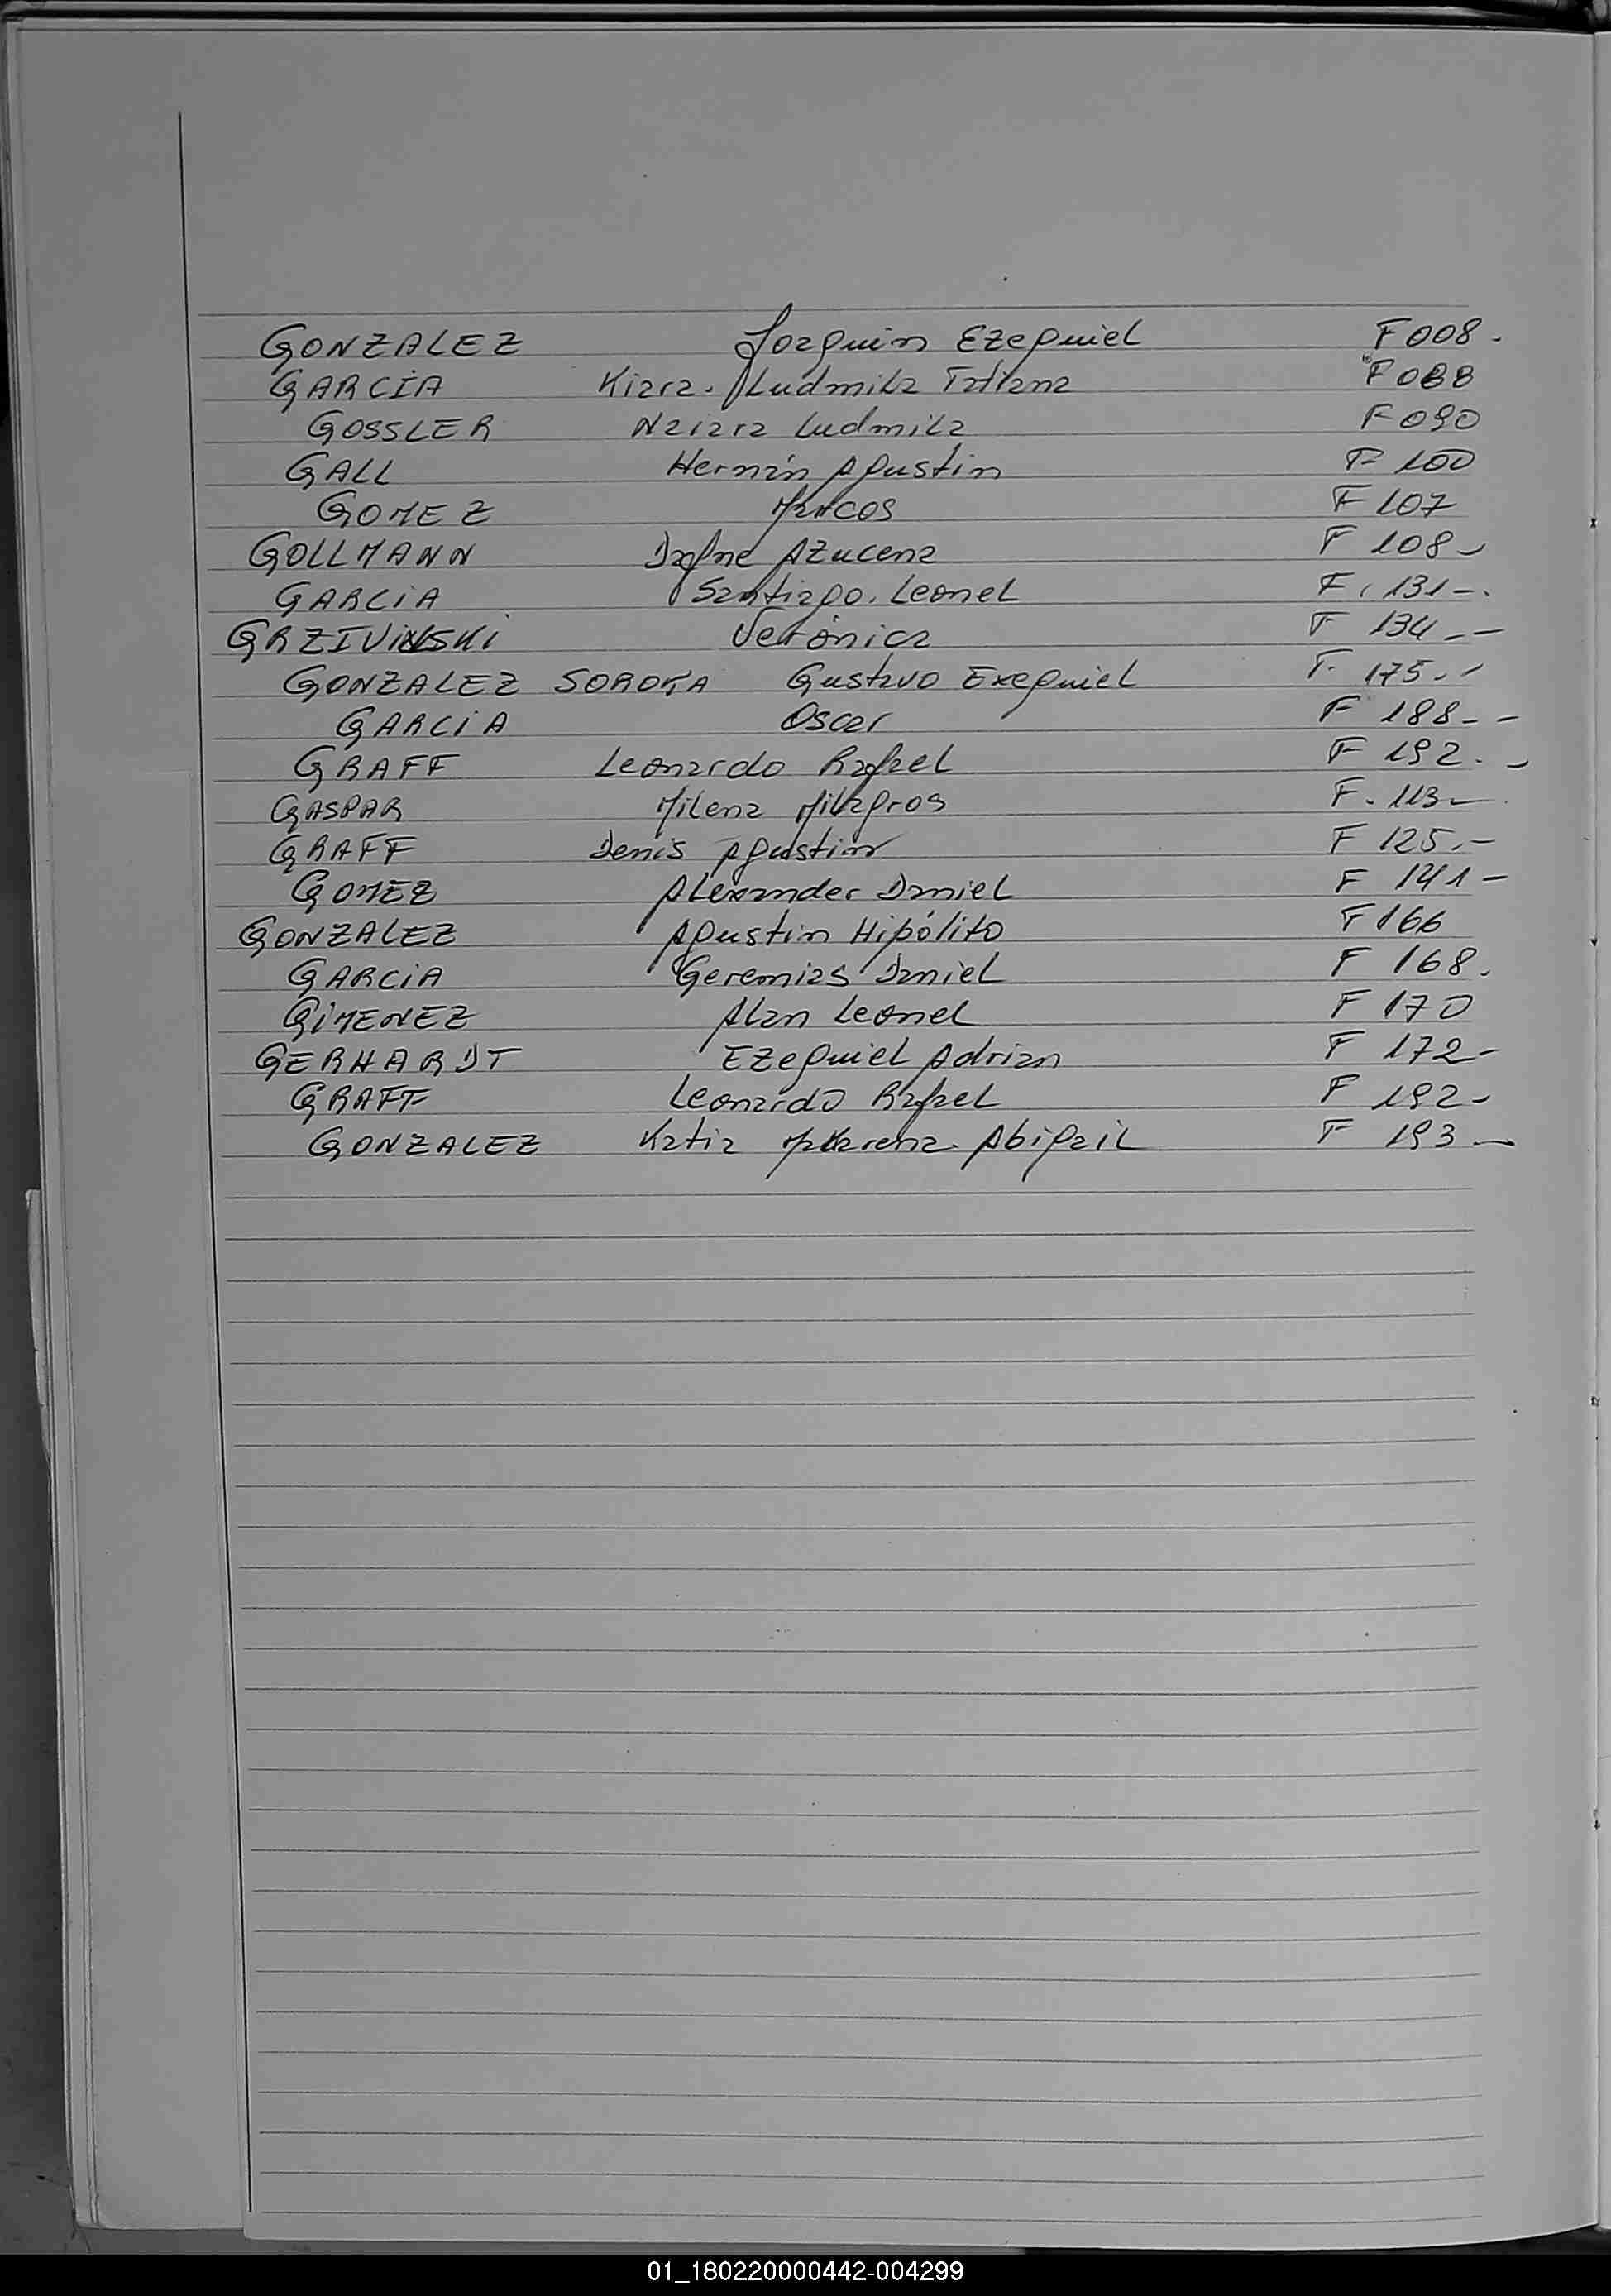 GONZALEZ Joaquin Ezequiel F008.
GARCÍA Kiara. Ludmila Tatiana F088
GOSSLER Naiara Ludmila F090
GALL Hernán Agustin F 100
GOMEZ Marcos F 107
GOLLMANN Dafne Azucena F 108-
GARCIA Santiago. Leonel F. 131-.
GRZIVINSKI Verónica F 134.--
GONZALEZ SOROKA Gustavo Exequiel F. 175.-
GARCIA Oscar F 188--
GRAFF Leonardo Rafael F 192.-
GASPAR Milena Milagros F. 113-
GRAFF Denis Agustin F 125.-
GOMEZ Alexander Daniel F 141-
GONZALEZ Agustin Hipólito F 166
GARCIA Geremias Daniel F 168.
GIMENEZ Alan Leonel F 170
GERHARDT Ezequiel Adrian F 172-
GRAFF Leonardo Rafael F 192-
GONZALEZ Katia Abigail F 193-
01_180220000442-004299